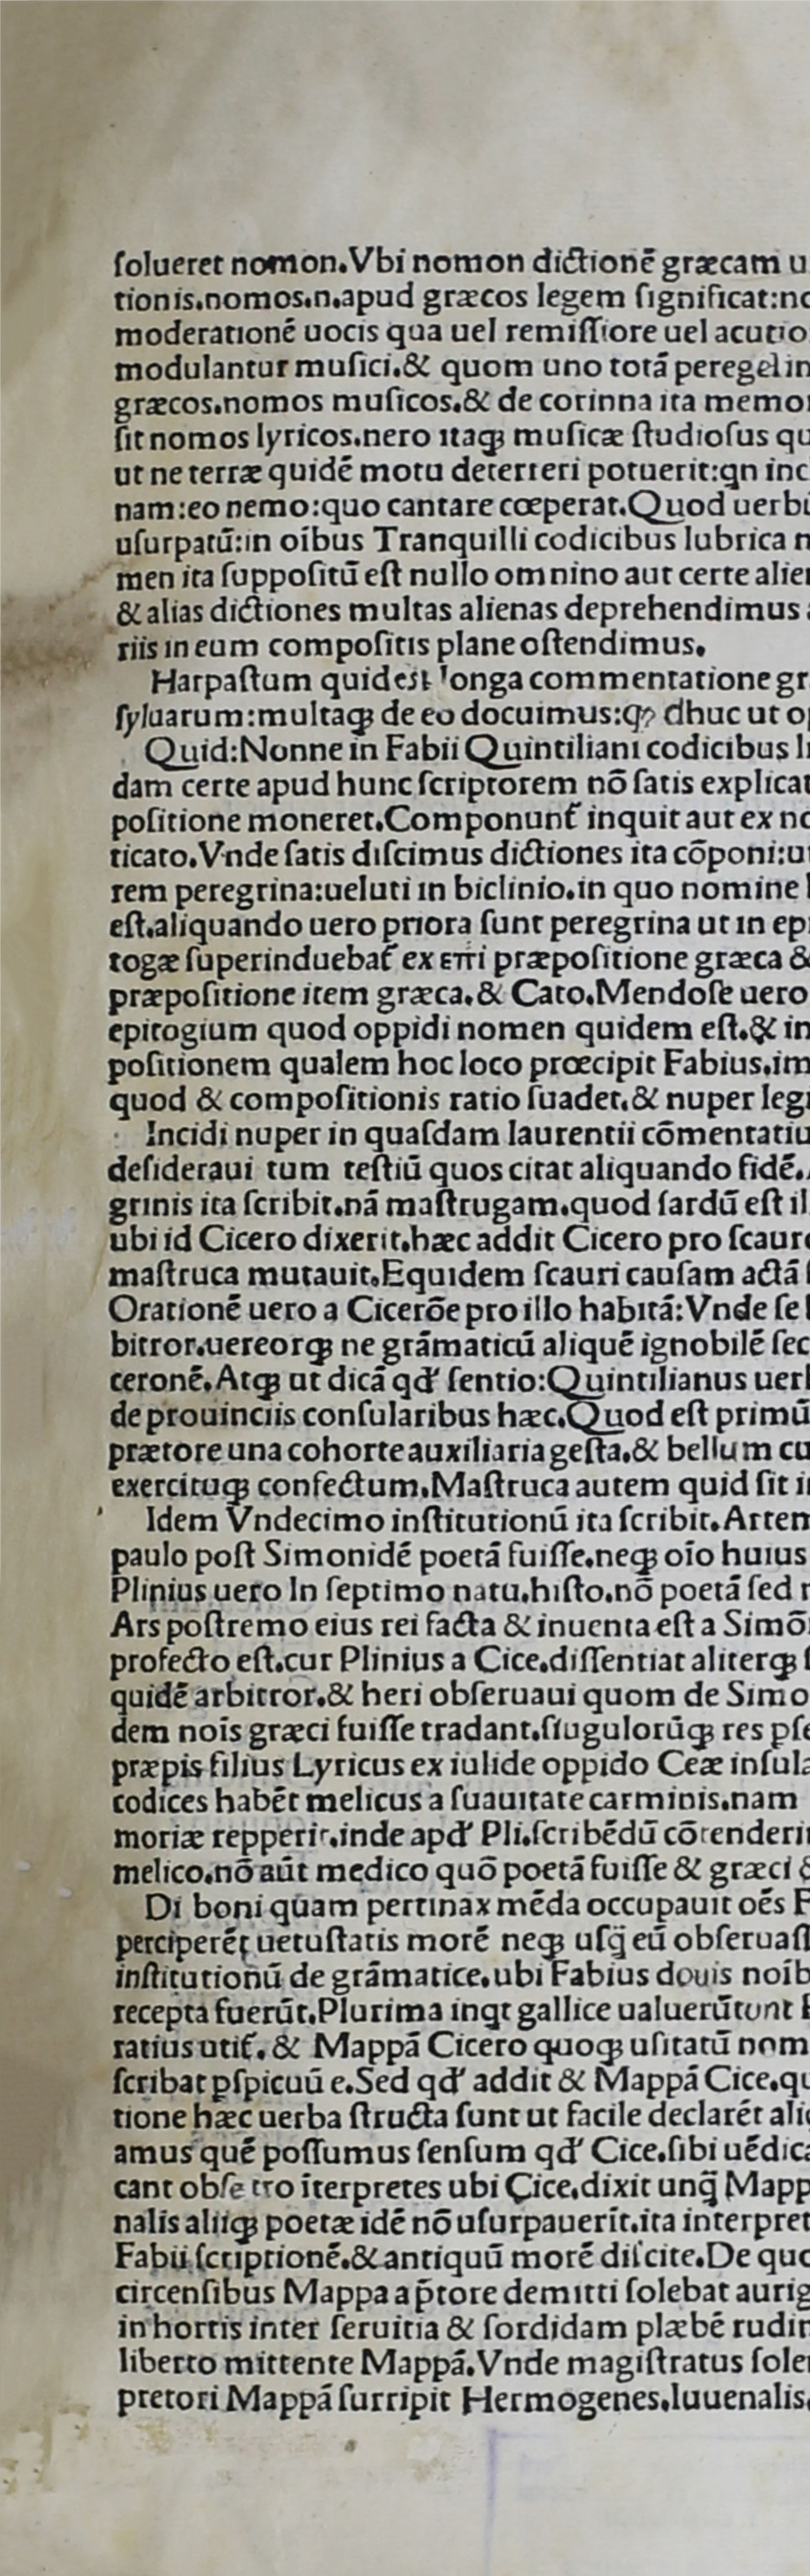 ſolueret nomon.Vbi nomon dictionē græcam u
tionis.nomos.n.apud græcos legem ſignificat:no
moderationē uocis qua uel remiſſiore uel acutio
modulantur muſici.& quom uno totā peregelin
græcos.nomos muſicos.& de corinna ita memo
ſit nomos lyricos.nero itaqꝫ muſicæ ſtudioſus qu
ut ne terræ quidē motu deterreri potuerit:qn inc
nam:eo nemo:quo cantare cœperat.Quod uerbu
uſurpatū:in oībus Tranquilli codicibus lubrica n
men ita ſuppoſitū eſt nullo omnino aut certe alie
& alias dictiones multas alienas deprehendimus a
riis in eum compoſitis plane oſtendimus.
Harpaſtum quid est longa commentatione gr
ſyluarum:multaqꝫ de eo docuimus: dhuc ut op
Quid:Nonne in Fabii Quintiliani codicibus li
dam certe apud hunc ſcriptorem nō ſatis explicat
poſitione moneret.Componunt᷑ inquit aut ex no
ticato.Vnde ſatis diſcimus dictiones ita cōponi:u
rem peregrina:ueluti in biclinio.in quo nomine l
eſt.aliquando uero priora ſunt peregrina ut in epi
togæ ſuperinduebat᷑ ex επi præpoſitione græca &
præpoſitione item græca.& Cato.Mendoſe uero
epitogium quod oppidi nomen quidem eſt.& in
poſitionem qualem hoc loco prœcipit Fabius.im
quod & compoſitionis ratio ſuadet.& nuper legi
Incidi nuper in quaſdam laurentii cōmentatiu
deſideraui tum teſtiū quos citat aliquando fidē.
grinis ita ſcribit.nā maſtrugam.quod ſardū eſt il
ubi id Cicero dixerit.hæc addit Cicero pro ſcauro
maſtruca mutauit.Equidem ſcauri cauſam actā
Orationē uero a Cicerōe pro illo habitā:Vnde ſe
bitror.uereorqꝫ ne grāmaticū aliquē ignobilē ſec
ceronē.Atqꝫ ut dicā qd' ſentio:Quintilianus uerb
de prouinciis conſularibus hæc.Quod eſt primū
prætore una cohorte auxiliaria geſta.& bellum cu
exercituqꝫ confectum.Maſtruca autem quid ſit in
Idem Vndecimo inſtitutionū ita ſcribit.Artem
paulo poſt Simonidē poetā fuiſſe.neqꝫ oīo huius
Plinius uero In ſeptimo natu.hiſto.nō poetā ſed
Ars poſtremo eius rei facta & inuenta eſt a Simō
profecto eſt.cur Plinius a Cice.diſſentiat aliterqꝫ
quidē arbitror.& heri obſeruaui quom de Simo
dem noīs græci fuiſſe tradant.ſiugulorūqꝫ res pſe
præpis filius Lyricus ex iulide oppido Ceæ inſula
codices habēt melicus a ſuauitate carminis.nam
moriæ repperir.inde apd' Pli.ſcribēdū cōtenderi
melico.nō aūt medico quō poetā fuiſſe & græci &
Di boni quam pertinax mēda occupauit oēs F
perciperēt uetuſtatis morē neqꝫ uſq̄ eū obſeruaſſ
inſtitutionū de grāmatice.ubi Fabius douis noīb
recepta fuerūt.Plurima inqt gallice ualuerūtunt
ratius utit᷑.& Mappā Cicero quoqꝫ uſitatū nom
ſcribat pſpicuū e.Sed qd' addit & Mappā Cice.qu
tione hæc uerba ſtructa ſunt ut facile declarēt aliq
amus quē poſſumus ſenſum qd' Cice.ſibi uēdica
cant obſe tro īterpretes ubi Cice.dixit unq̄ Mapp
nalis aliiqꝫ poetæ idē nō uſurpauerīt.ita interpret
Fabii ſcriptionē.&antiquū morē diſcite.De quo
circenſibus Mappa a p̄tore demitti ſolebat aurig
in hortis inter ſeruitia & ſordidam plæbē rudim
liberto mittente Mappā.Vnde magiſtratus ſole
pretori Mappā ſurripit Hermogenes.Iuuenalis.